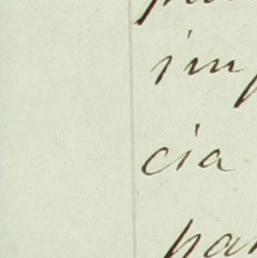 imp
cia
par